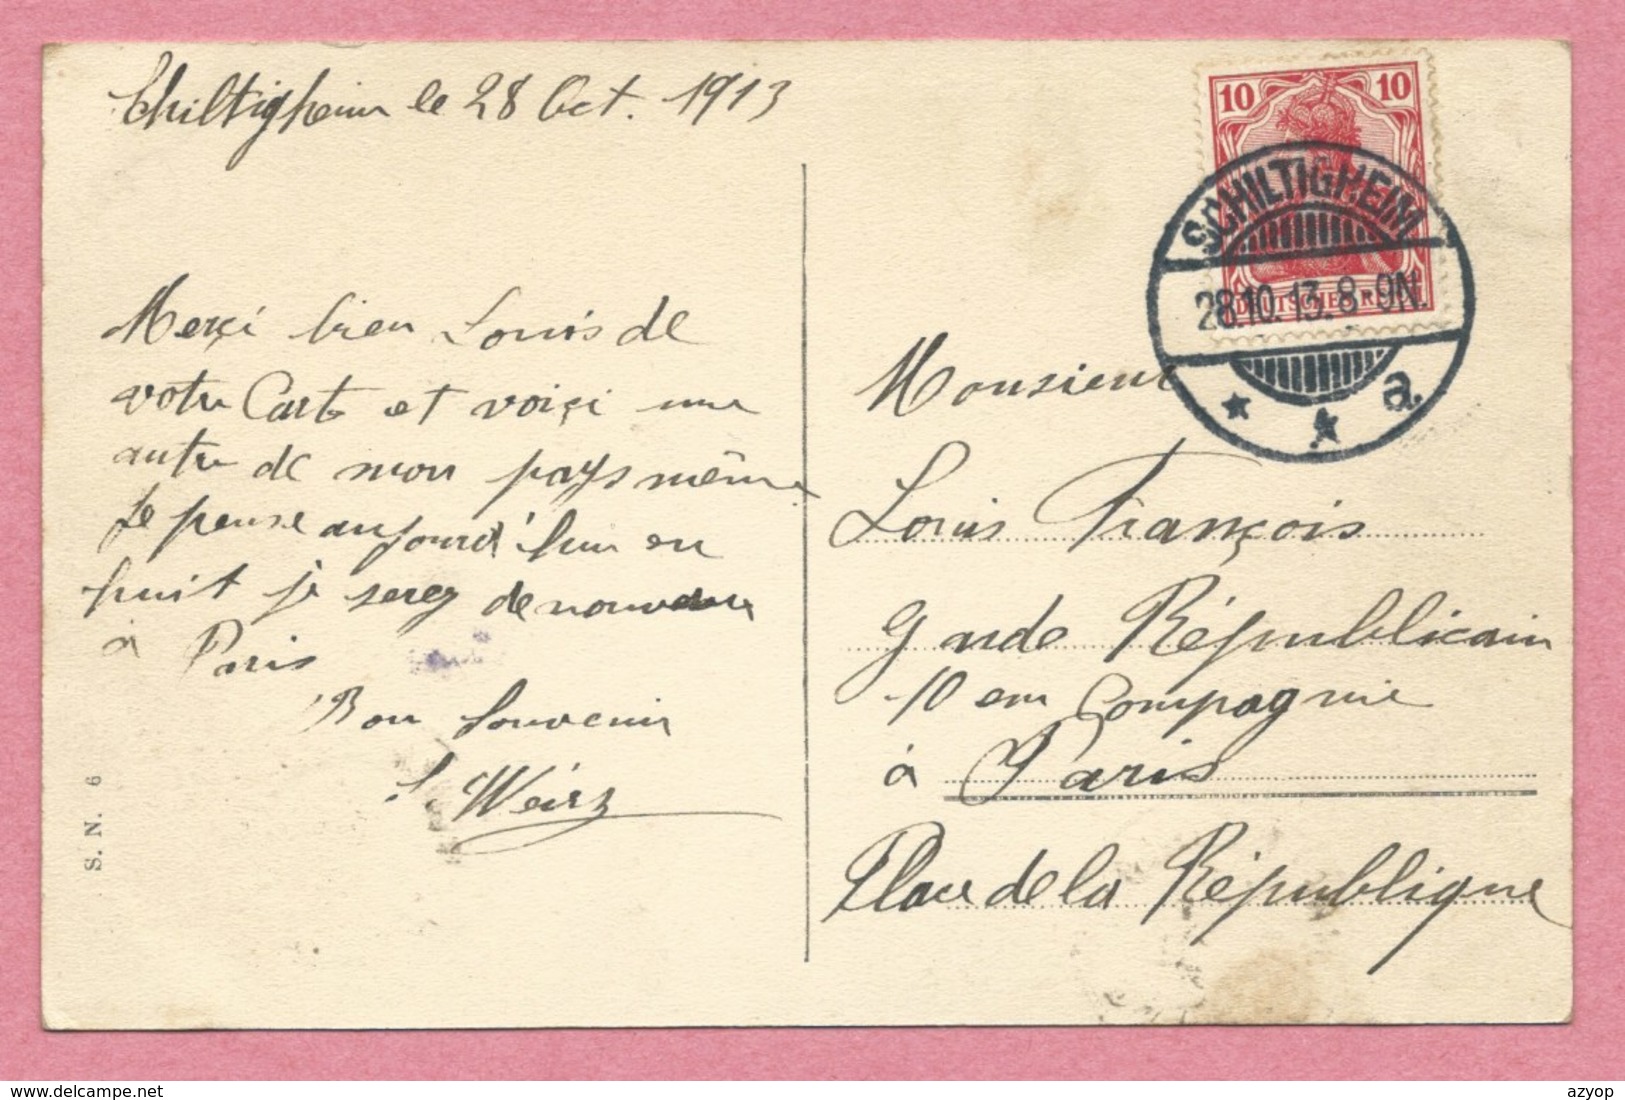 Schiltigheim le 28 Oct. 1913
Merçi bien Louis de
votre Carte et voiçi une
autre de mon pays même
Je pense aujourd'hui en
huit je serez de nouveau
à Paris
Bon Souvenir
L. Weirz
S. N. 6
10 10
DEUTSCHES REICH
SCHILTIGHEIM
28.10.13.8-9N.
* * a.
Monsieur
Louis François
Garde Républicain
10 em Compagnie
à Paris
Place de la République
azyop